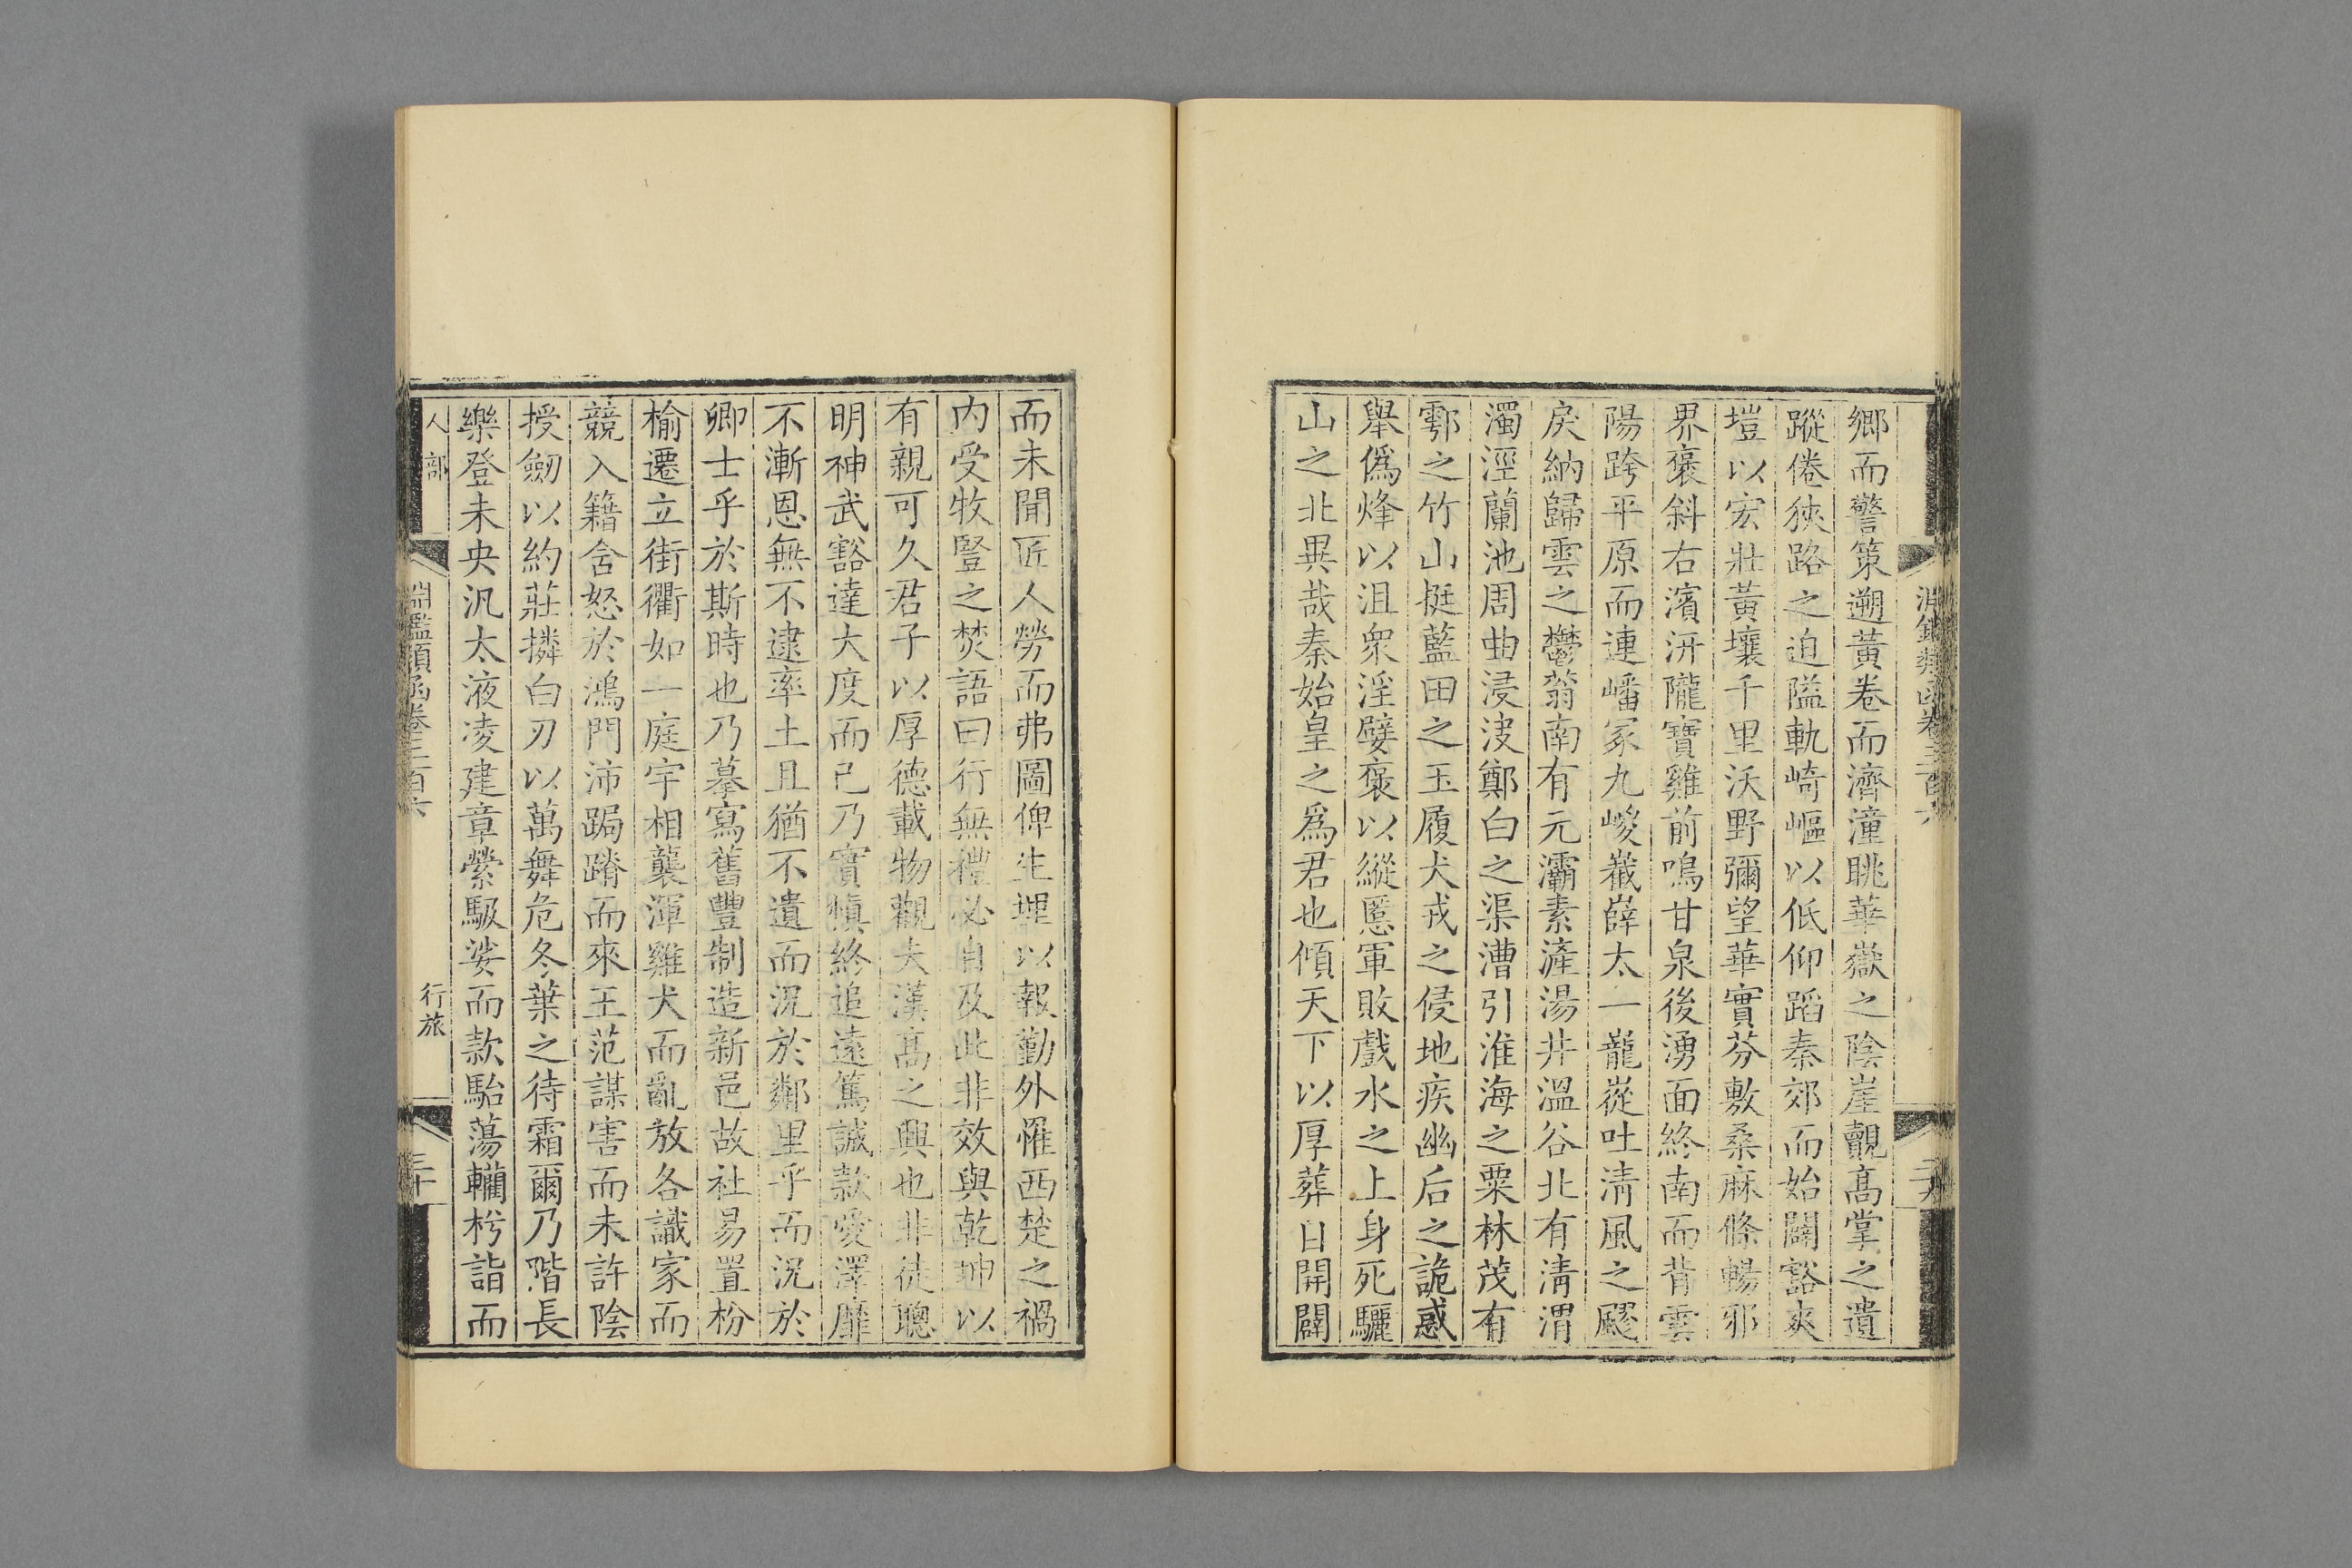 淵鑑類函卷三百六
鄉而警策遡黃卷而濟潼眺華嶽之陰崖覿高掌之遺
蹤倦狹路之迫隘軌崎嶇以低仰蹈秦郊而始闢豁爽
塏以宏壯黃壤千里沃野彌望華實芬敷桑麻條暢邪
界褒斜右濱汧隴寶雞前鳴甘泉後湧面終南而背雲
陽跨平原而連嶓冢九嵕嶻嶭太一巃嵸吐清風之飂
戾納歸雲之鬱蓊南有元灞素滻湯井溫谷北有清渭
濁涇蘭池周曲浸決鄭白之渠漕引淮海之粟林茂有
鄠之竹山挺藍田之玉履犬戎之侵地疾幽后之詭惑
舉偽烽以沮衆淫嬖褒以縱慝軍敗戲水之上身死驪
山之北異哉秦始皇之爲君也傾天下以厚葬日開闢
而未聞匠人勞而弗圖俾生埋以報勤外罹西楚之禍
內受牧豎之焚語曰行無禮必自及此非效與乾坤以
有親可久君子以厚德載物觀夫漢髙之興也非徒聰
明神武豁達大度而已乃實愼終追遠篤誠款愛澤靡
不漸恩無不逮率土且猶不遺而況於鄰里乎而況於
卿士乎於斯時也乃摹寫舊豐制造新邑故社易置枌
榆遷立街衢如一庭宇相襲渾雞犬而亂放各識家而
競入籍含怒於鴻門沛跼蹐而來王范謀害而未許陰
授劒以約莊撛白刃以萬舞危冬葉之待霜爾乃階長
樂登未央汎太液凌建章縈馺娑而款駘蕩轥枍詣而
人部
淵鑑類函卷三百六
行旅
三十